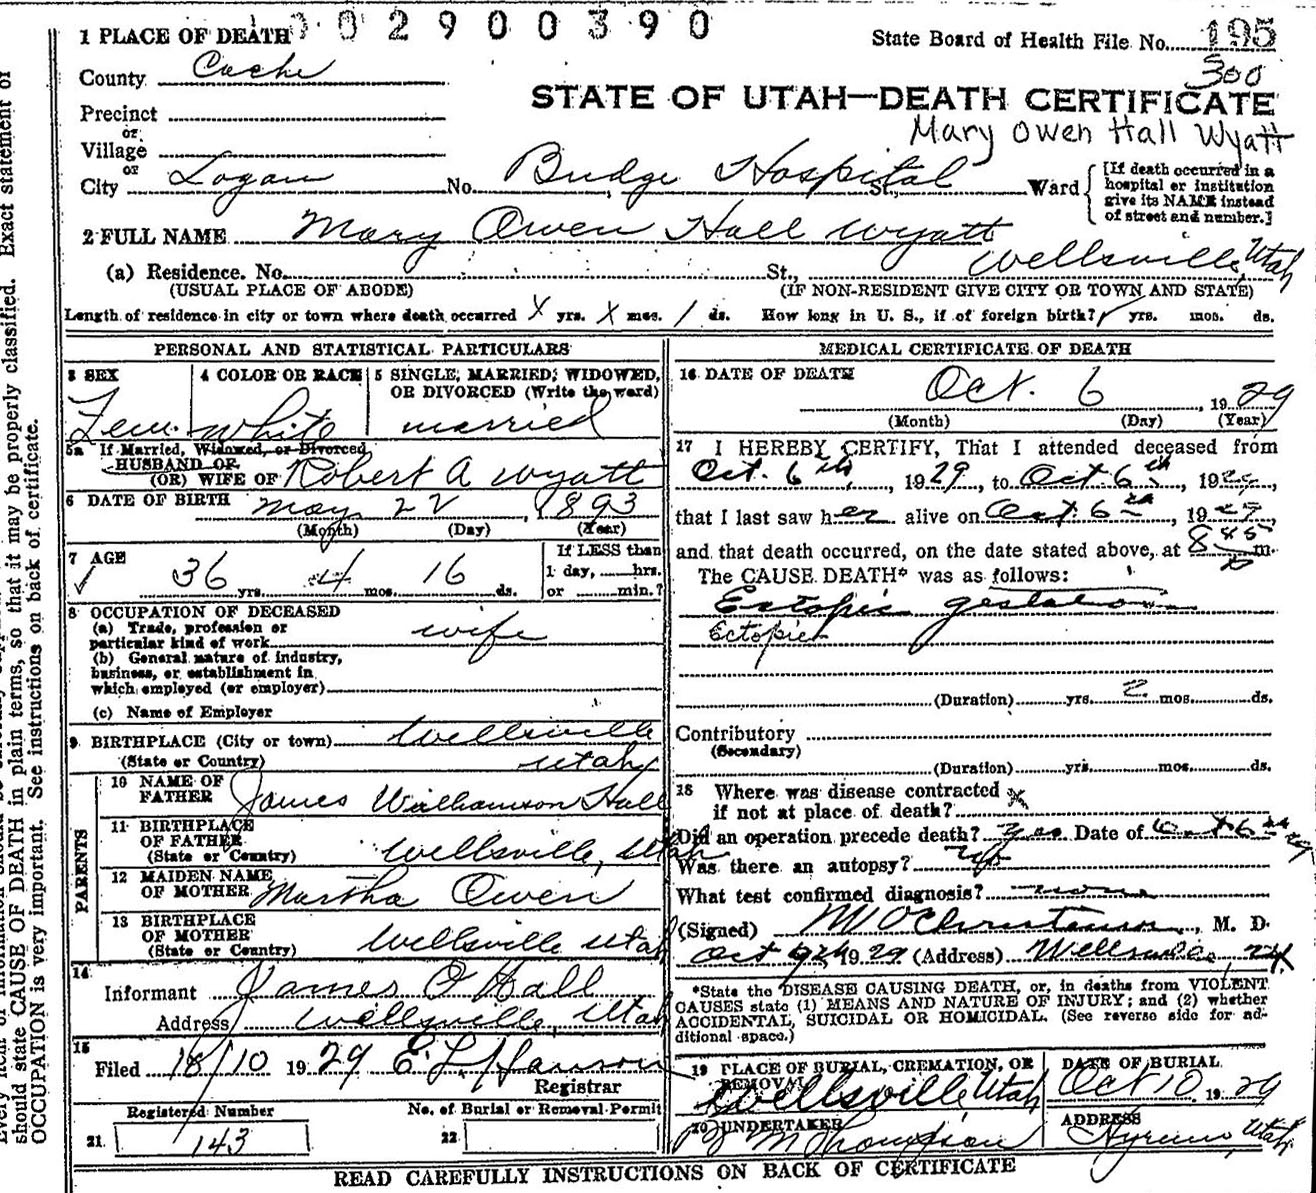 002900390
1 PLACE OF DEATH
State Board of Health File No. 195
300
County Cache
STATE OF UTAH—DEATH CERTIFICATE
Mary Owen Hall Wyatt
Precinct
or
Village
or
City Logan No. Budge Hospital St., Ward
[If death occurred in a
hospital or institution
give its NAME instead
of street and number.]
2 FULL NAME Mary Owen Hall Wyatt
(a) Residence. No. St., Wellsville, Utah
(USUAL PLACE OF ABODE) (IF NON-RESIDENT GIVE CITY OR TOWN AND STATE)
Length of residence in city or town where death occurred X yrs. X mos. 1 ds. How long in U. S., if of foreign birth? yrs. mos. ds.
PERSONAL AND STATISTICAL PARTICULARS
3 SEX 4 COLOR OR RACE 5 SINGLE, MARRIED, WIDOWED,
OR DIVORCED (Write the word)
Fem. white married
5a If Married, Widowed, or Divorced
HUSBAND OF
(OR) WIFE OF Robert A Wyatt
6 DATE OF BIRTH May 22, 1893
(Month) (Day) (Year)
7 AGE
36 yrs. 4 mos. 16 ds.
If LESS than
1 day, hrs.
or min.?
8 OCCUPATION OF DECEASED
(a) Trade, profession or
particular kind of work wife
(b) General nature of industry,
business, or establishment in
which employed (or employer)
(c) Name of Employer
9 BIRTHPLACE (City or town) Wellsville
(State or Country) Utah
PARENTS
10 NAME OF
FATHER James Williamson Hall
11 BIRTHPLACE
OF FATHER
(State or Country) Wellsville, Utah
12 MAIDEN NAME
OF MOTHER Martha Owen
13 BIRTHPLACE
OF MOTHER
(State or Country) Wellsville Utah
14
Informant James O Hall
Address Wellsville, Utah
15
Filed 18/10 1929 E. L. Hanson
Registrar
Registered Number No. of Burial or Removal Permit
21. 143 22
MEDICAL CERTIFICATE OF DEATH
16 DATE OF DEATH
Oct. 6, 1929
(Month) (Day) (Year)
17 I HEREBY CERTIFY, That I attended deceased from
Oct. 6th, 1929, to Oct. 6th, 1929,
that I last saw her alive on Oct. 6th, 1929,
and that death occurred, on the date stated above, at 8 45 P m.
The CAUSE DEATH* was as follows:
Ectopic gestation
Ectopic
(Duration) yrs. 2 mos. ds.
Contributory
(Secondary)
(Duration) yrs. mos. ds.
18 Where was disease contracted
if not at place of death? X
Did an operation precede death? yes Date of Oct 6th 29
Was there an autopsy? no
What test confirmed diagnosis? none
(Signed) M O Christensen, M. D.
Oct 1929 (Address) Wellsville,
*State the DISEASE CAUSING DEATH, or, in deaths from VIOLENT
CAUSES state (1) MEANS AND NATURE OF INJURY; and (2) whether
ACCIDENTAL, SUICIDAL OR HOMICIDAL. (See reverse side for ad-
ditional space.)
19 PLACE OF BURIAL, CREMATION, OR
REMOVAL
Wellsville Utah
DATE OF BURIAL
Oct 10 1929
20 UNDERTAKER
M Thompson
ADDRESS
Hyrum, Utah
READ CAREFULLY INSTRUCTIONS ON BACK OF CERTIFICATE
should state CAUSE OF DEATH in plain terms, so that it may be properly classified. Exact statement of
OCCUPATION is very important. See instructions on back of certificate.